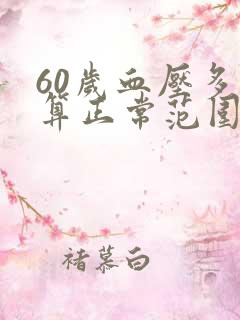 60歲血壓多
算正常范围
褚慕白